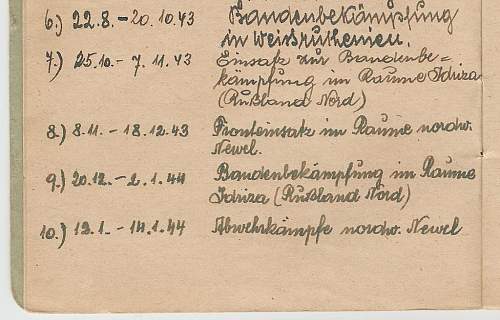 6.) 22.8. - 20.10.43 Bandenbekämpfung
in Weißruthenien.
7.) 25.10. - 7.11.43 Einsatz zur Bandenbe=
kämpfung im Raume Idriza
(Rußland Nord)
8.) 8.11. - 18.12.43 Fronteinsatz im Raume nordw.
Newel.
9.) 20.12. - 2.1.44 Bandenbekämpfung im Raume
Idriza (Rußland Nord)
10.) 12.1. - 14.1.44 Abwehrkämpfe nordw. Newel